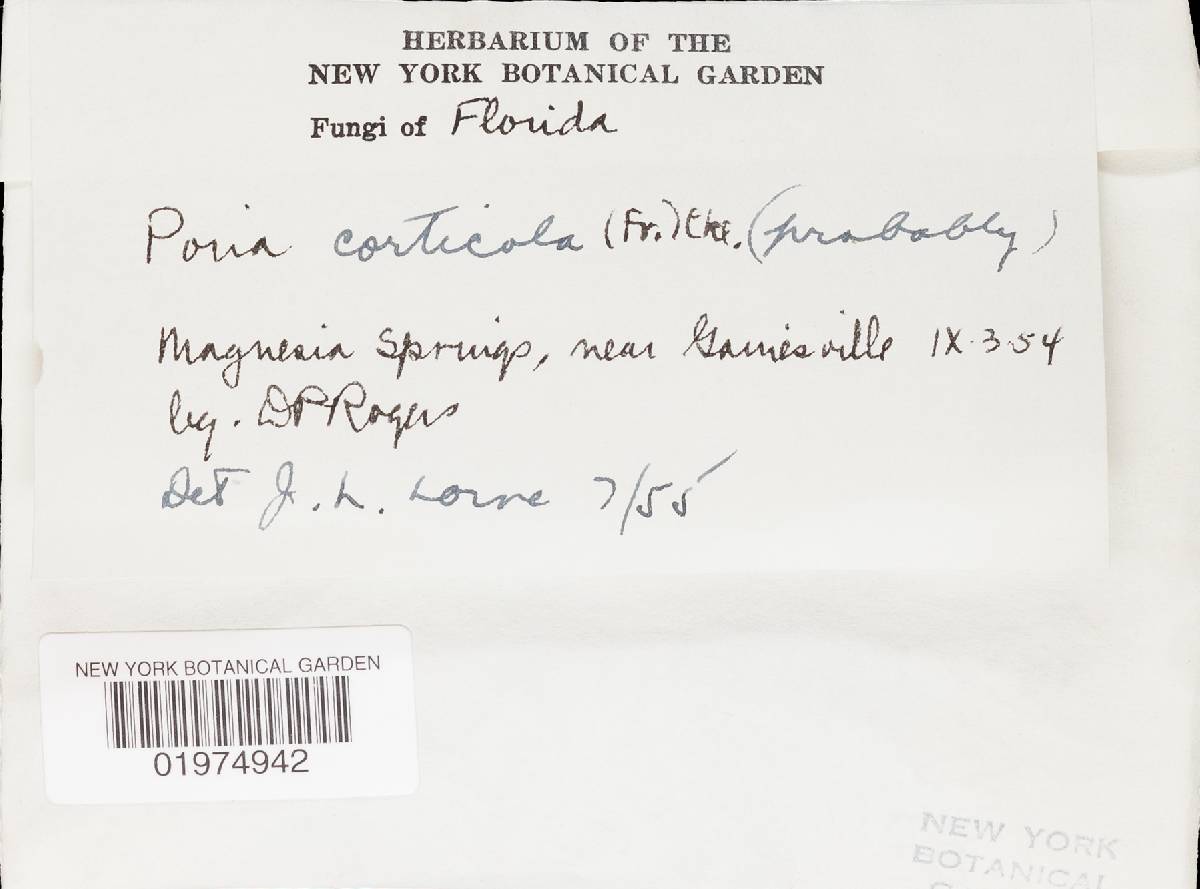 HERBARIUM OF THE
NEW YORK BOTANICAL GARDEN
Fungi of Florida
Poria corticola (Fr.) Cke. (probably)
Magnesia Springs, near Gainesville IX-3-54
leg. DPRogers
Det J. L. Lowe 7/55
NEW YORK BOTANICAL GARDEN
01974942
NEW YORK
BOTANICAL